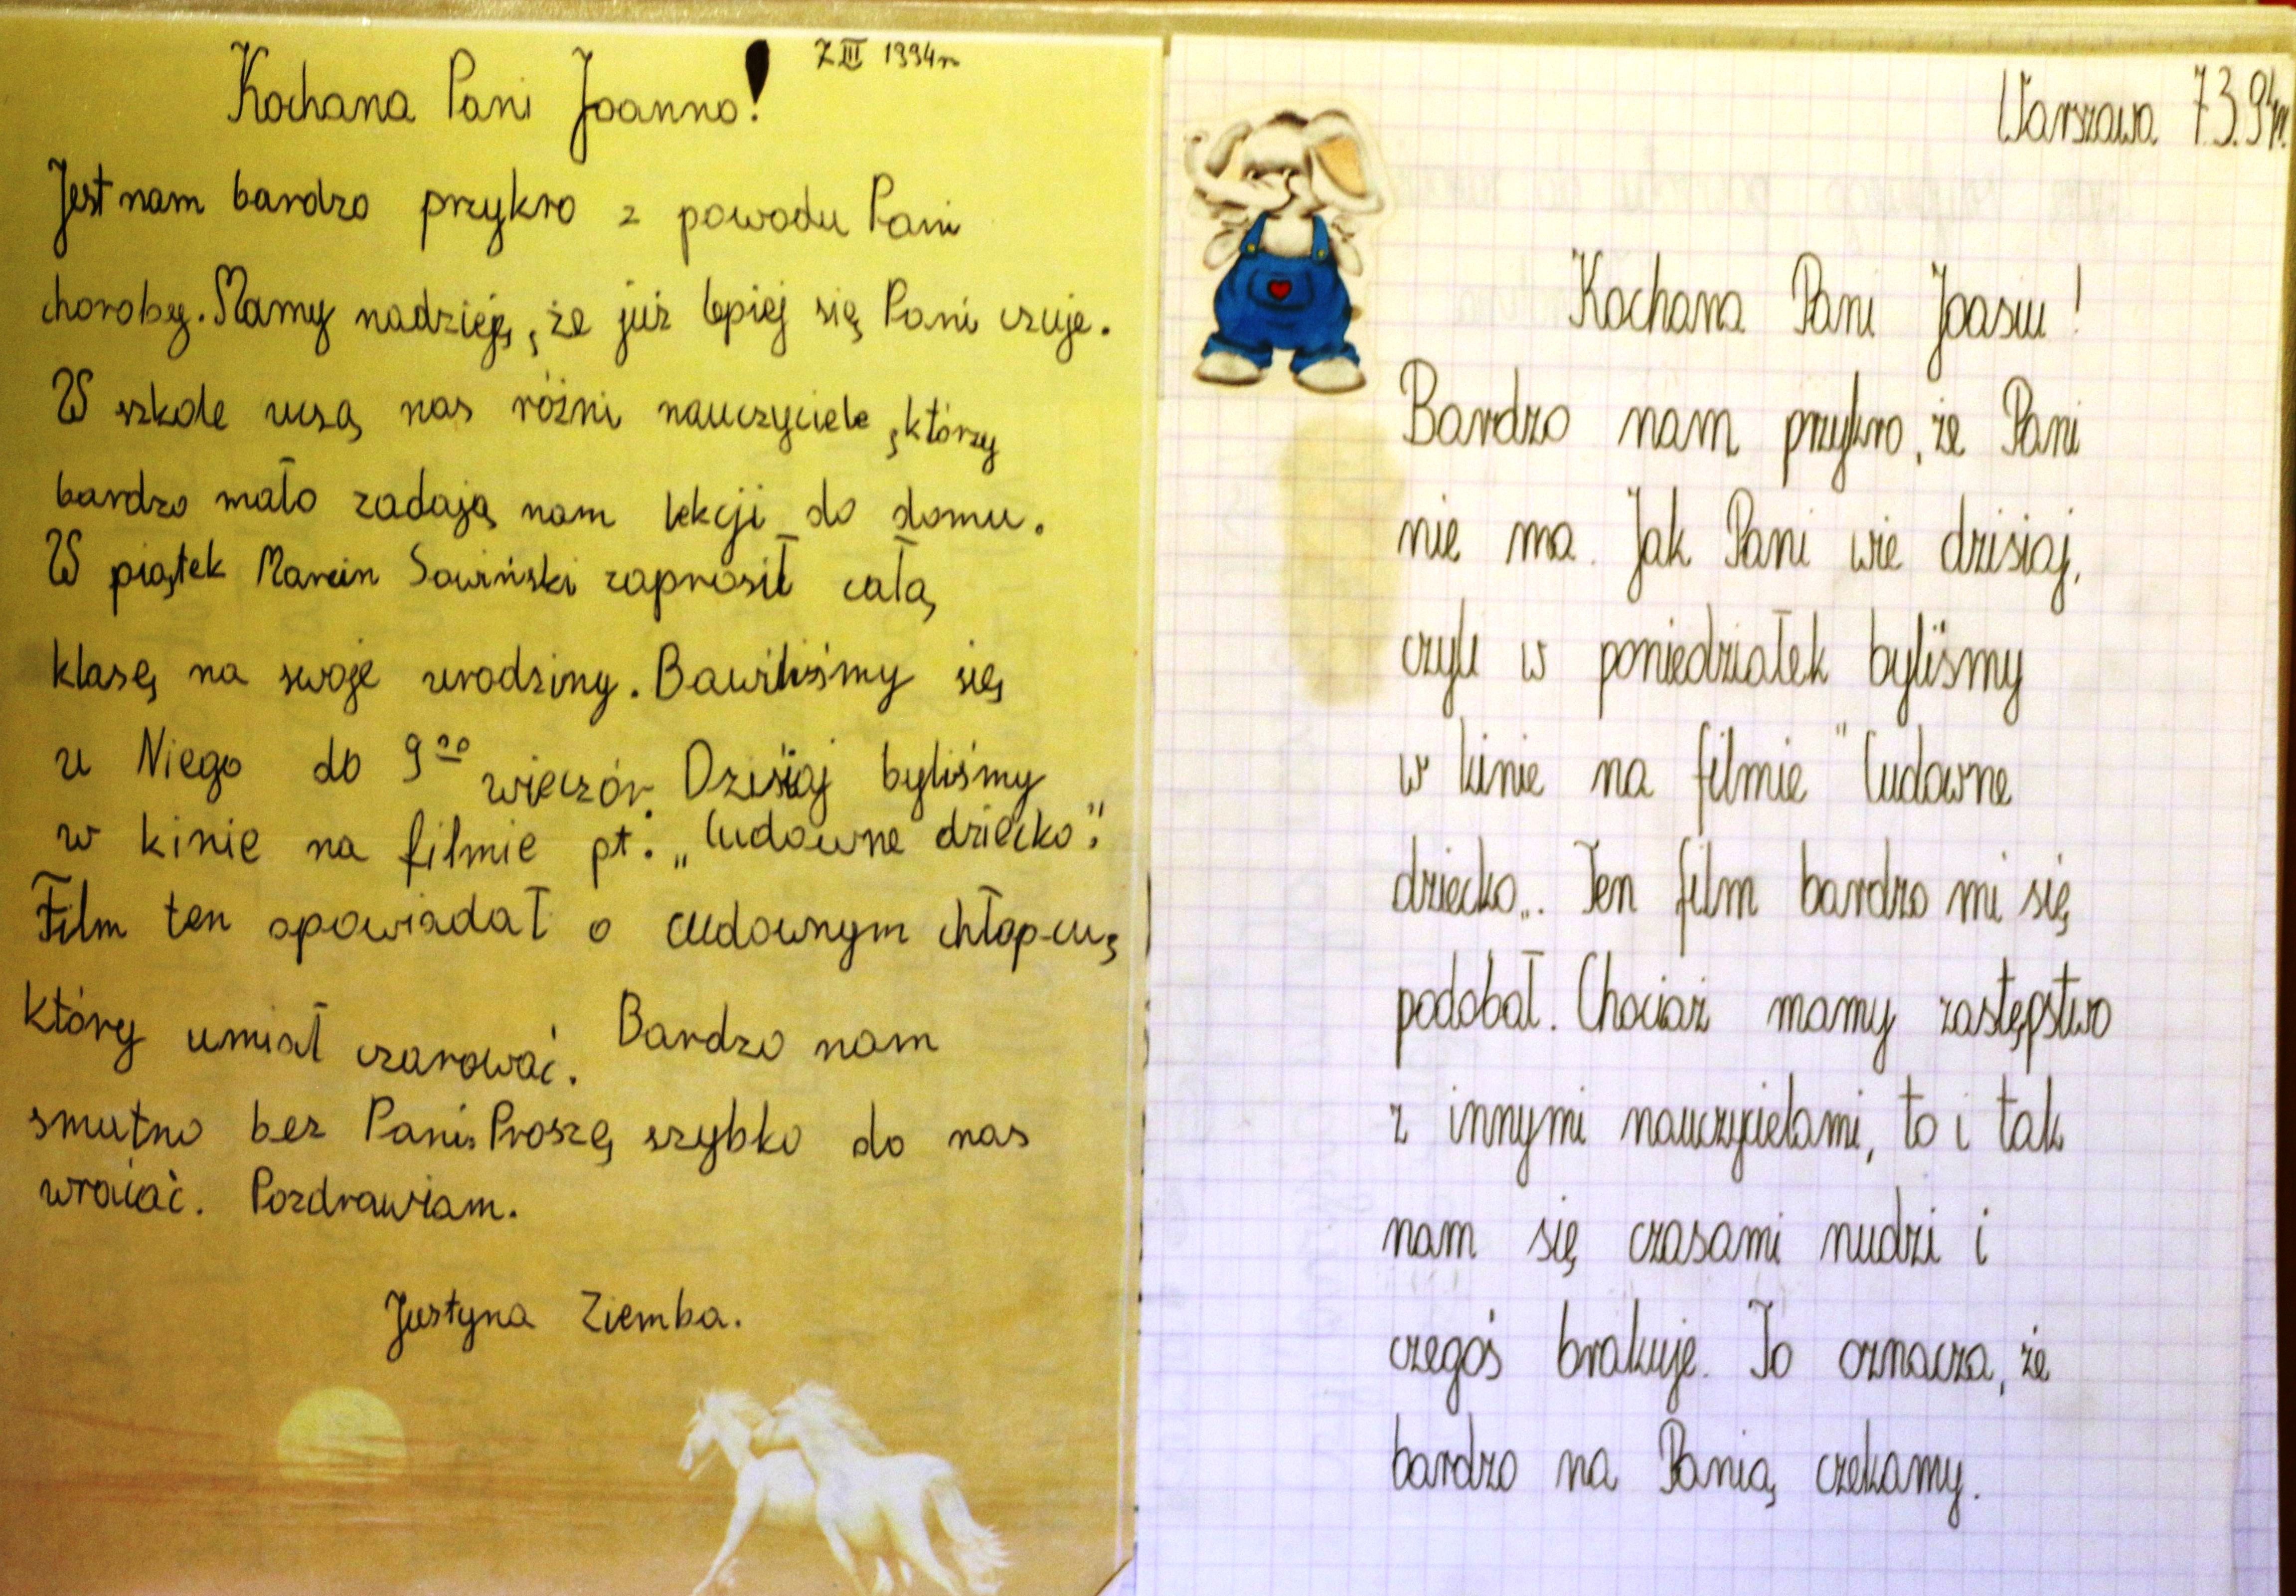 7 III 1994r
Kochana Pani Joanno!
Jest nam bardzo przykro z powodu Pani
choroby. Mamy nadzieję, że już lepiej się Pani czuje.
W szkole uczą nas różni nauczyciele, którzy
bardzo mało zadają nam lekcji do domu.
W piątek Marcin Sawiński zaprosił całą
klasę na swoje urodziny. Bawiliśmy się
u Niego do 9⁰⁰ wieczór. Dzisiaj byliśmy
w kinie na filmie pt. „Cudowne dziecko".
Film ten opowiadał o cudownym chłopcu,
który umiał czarować. Bardzo nam
smutno bez Pani. Proszę szybko do nas
wracać. Pozdrawiam.
Justyna Ziemba.
Warszawa 7.3.94r.
Kochana Pani Joasiu!
Bardzo nam przykro, że Pani
nie ma. Jak Pani wie dzisiaj,
czyli w poniedziałek byliśmy
w kinie na filmie "Cudowne
dziecko„. Ten film bardzo mi się
podobał. Chociaż mamy zastępstwo
z innymi nauczycielami, to i tak
nam się czasami nudzi i
czegoś brakuje. To oznacza, że
bardzo na Panią czekamy.